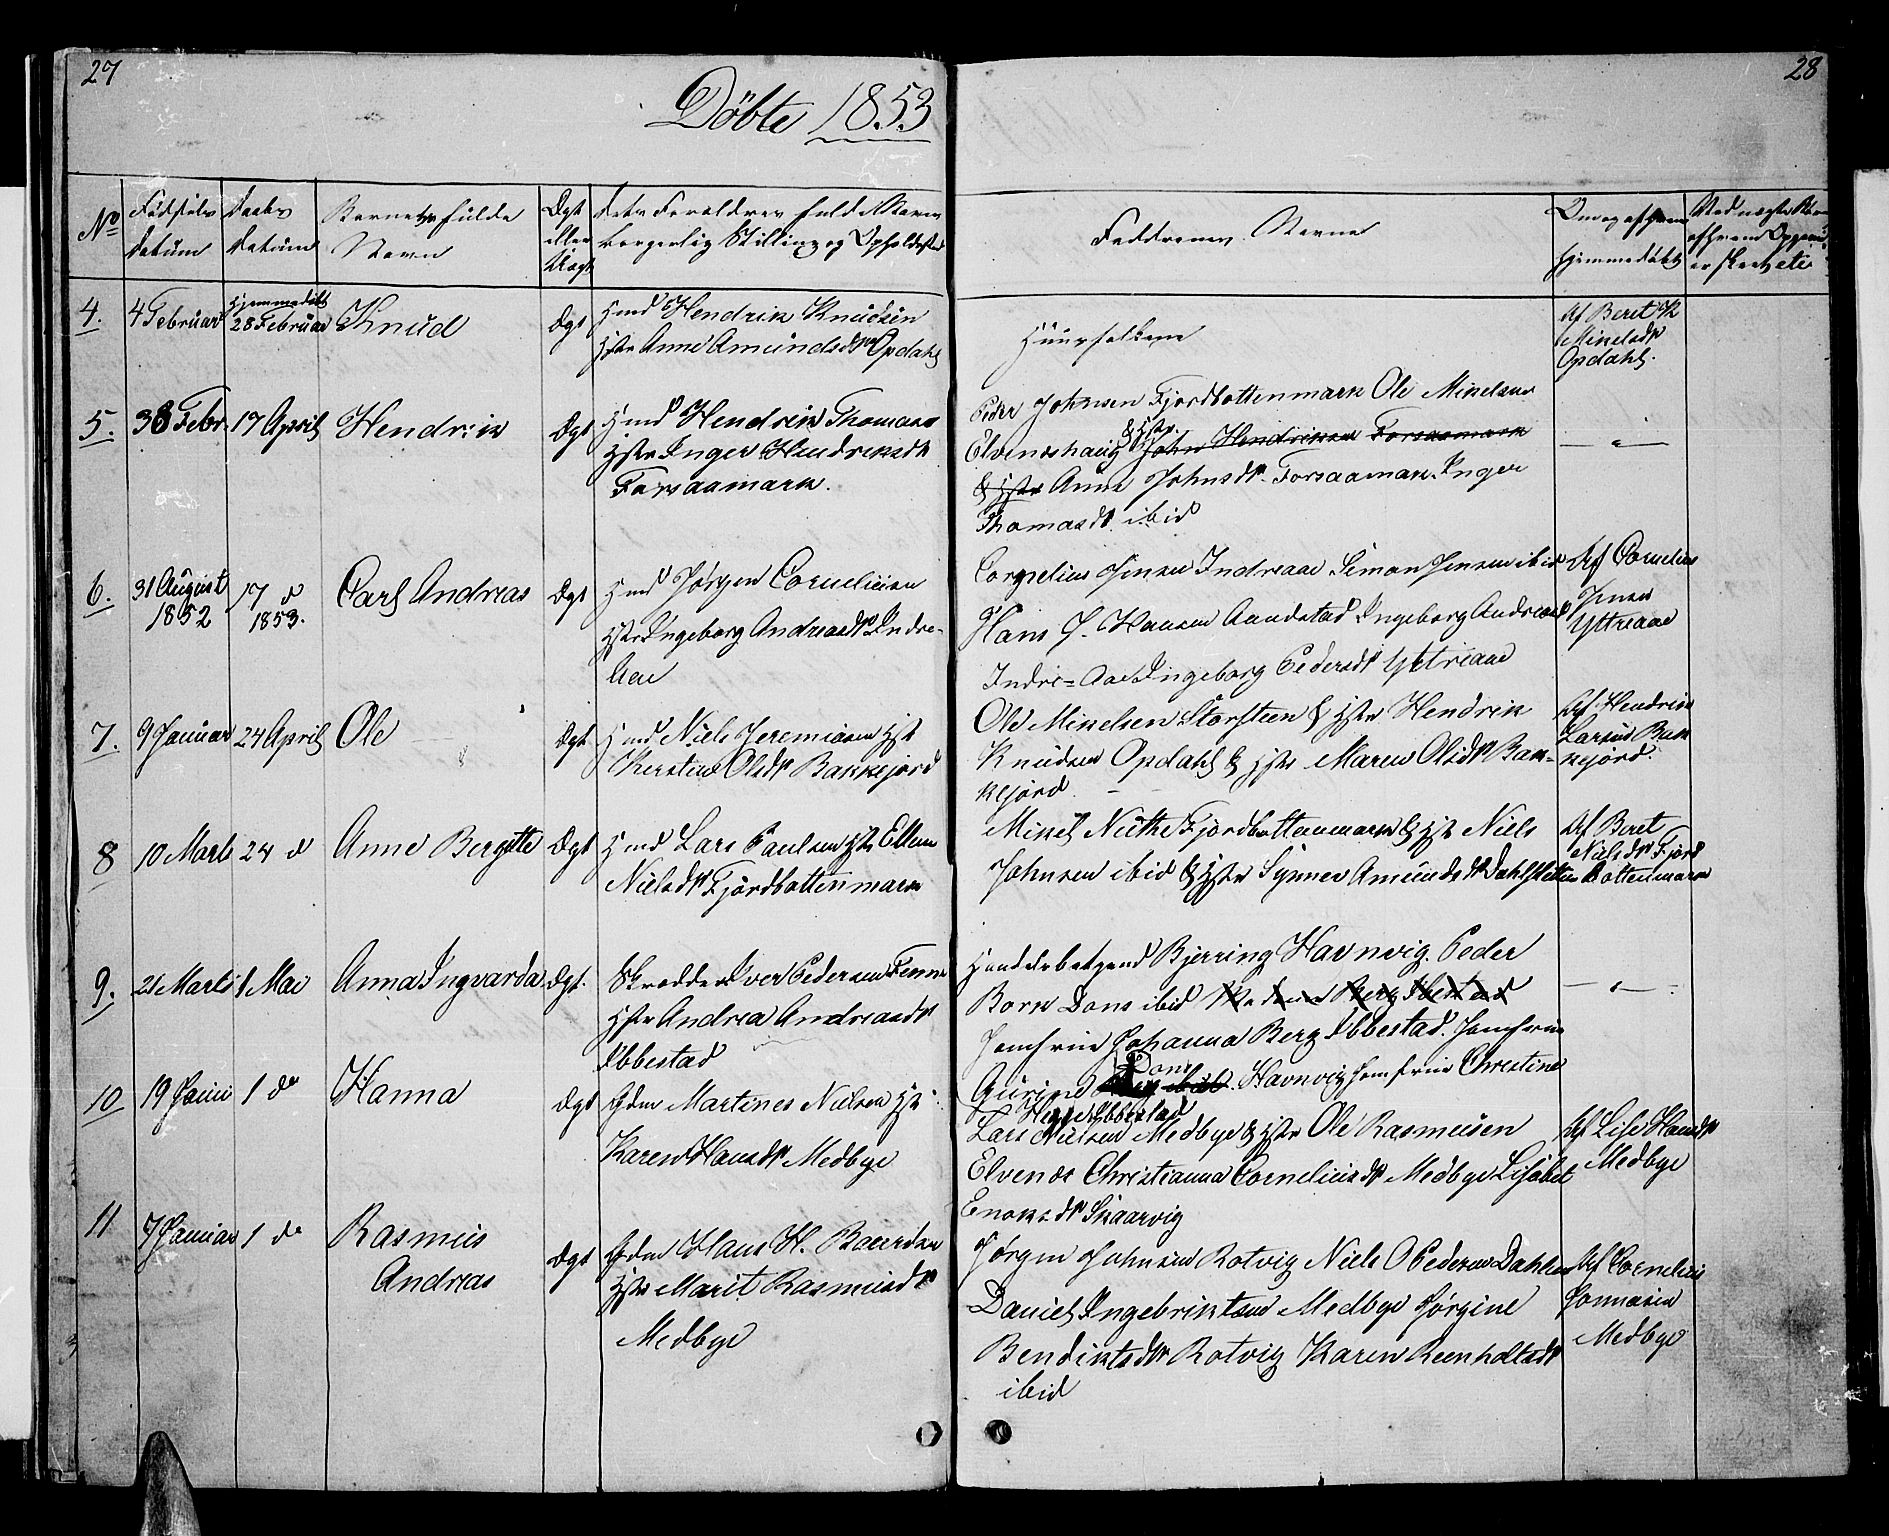 27
28
Döbte 1853
No
Fødsels
Datum
Daabs
Datum
Barnets fulde
Navn
Ægt
eller
Uægt
Dets Foreldres fulde Navne
borgerlig Stilling og Opholdssted
Faddernes Navne
Om og af hvem
hjemmedøbt
4.
4 Februar
Hjemmedøbt
28 Februar
Knud
Ægt
Hmd Hendrik Knudsen
Hstr Anne Amundsdtr Opdahl
Huusfolkene
Af Beret K
Mikelsdtr
Opdahl.
5.
Febr.
17 April
Hendrik
Ægt
Hmd Hendrik Thomass
Hstr Inger Hendriksdtr
Forsaamark.
Peder Johnsen Fjordbottenmark Ole Mikelsen
& Hstr.
Elvenshaug John Hendriksen Forsaamark
& Hstr Anne Johnsdtr. Forsaamark. Inger
Thomasdtr ibid
6.
31 August
1852
17 d
1853.
Carl Andreas
Ægt
Hmd Jørgen Corneliusen
Hstr Ingeborg Andreasdtr Indre-
Aae
Cornelius Jensen Indreaae Simon Jensen ibid
Hans J. Hansen Aandstad Ingeborg Andreasd
Indre=Aae Ingeborg Pedersdtr Ytreaae
Af Cornelius
Jensen
Ytreaae
7.
9 Januar
24 April
Ole
Ægt
Hmd Niels Jeremiasen Hst
Kirsten Olsdtr Bakkejord
Ole Mikelsen Storsteen & Hstr Hendrik
Knudsen Opdahl & Hstr Maren Olsdtr Bak-
kejord
Af Hendrik
Larsen Bak
kejord.
8
10 Marts
24 d
Anne Bergitte
Ægt
Hmd Lars Paulsen Hstr Ellen
Nielsdtr Fjordbottenmark
Mikel Fjordbottenmark & Hst Niels
Johnsen ibid & Hstr Synnev Amundsdtr Dahlsletten
Af Beret
Nielsdtr Fjord
bottenmark
9.
21 Marts
1 Mai
Anna Ingvarda
Ægt.
Skrædder Iver Pedersen
Hstr Andrea Andreasdtr
Ibbestad
Handelsbetjend Bjerring Havnvig. Peder
Bork Dons ibid
Jomfrue Johanna Berg Ibbestad. Jomfrue
Dons
Gurine Havnvig Jomfrue Christine
Ibbestad
10
19 Januar
1 do
Hanna
Ægt
Gdm Martines Nielsen Hst
Karen Hansdtr Medbye
Lars Nielsen Medbye & Hstr Ole Rasmusen
Elvenes Christianna Corneliusdtr Medbye Lisabet
Enoksdtr Skaarvig
Af Lise Hansdtr
Medbye
11
7 Januar
1 do
Rasmus
Andreas
Ægt
Gdm Hans H. Baardsen
Hstr Marit Rasmusdtr
Medbye
Jørgen Johnsen Rotvig Niels O Pedersen Dahlen
Daniel Ingebriktsen Medbye Jørgine
Bendiktsdtr Rotvig Karen Reenholtsdtr
ibid
Af Cornelius
Jonnasen
Medbye